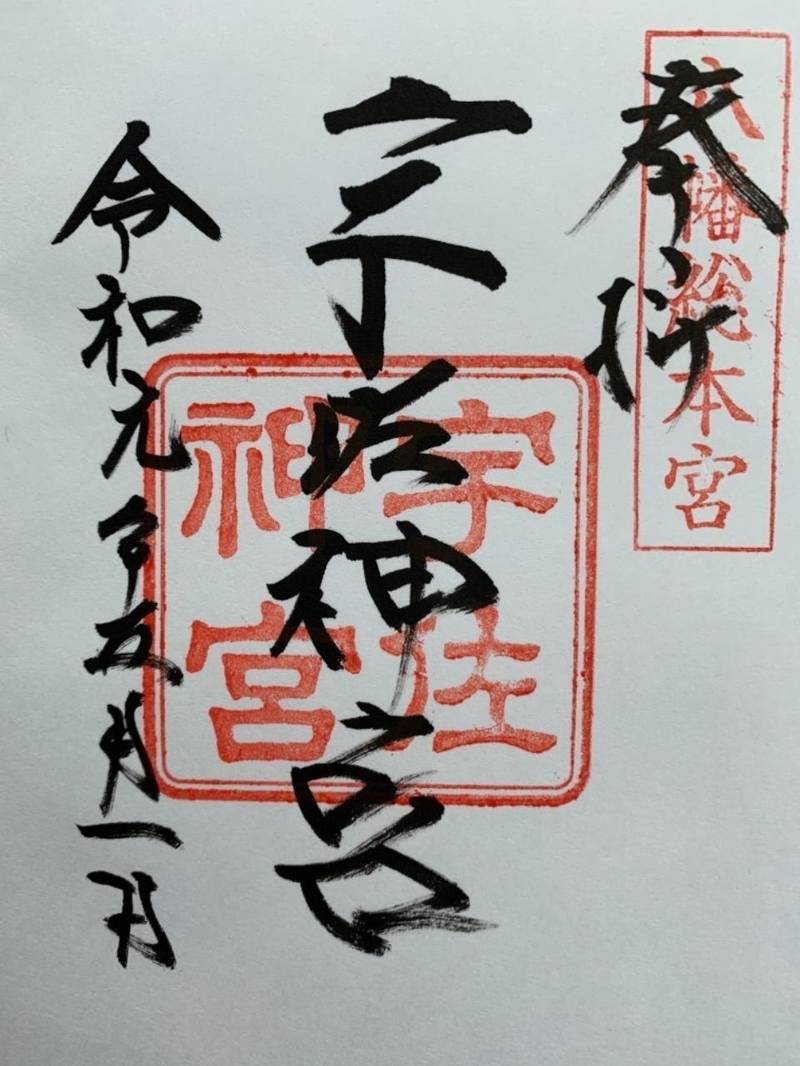 奉拝
八幡総本宮
宇佐神宮
宇佐神宮
令和元年五月一日